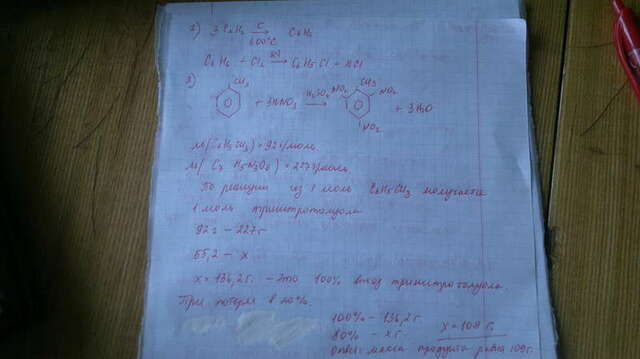 2) 3C2H2 C → 600°C C6H6
C6H6 + Cl2 hν → C6H5Cl + HCl
3)
CH3 + 3HNO3 H2SO4 → NO2 CH3 NO2 NO2 + 3H2O
M(C6H5CH3) = 92 г/моль
M( C7 H5N3O6) = 227 г/моль
По реакции из 1 моль C6H5CH3 получается
1 моль тринитротолуола
92 г - 227 г
55,2 - x
x = 136,2 г. - это 100% выход тринитротолуола.
При потере в 20%.
100% - 136,2 г
80% - x г.
x = 109 г.
Ответ: масса продукта равна 109 г.